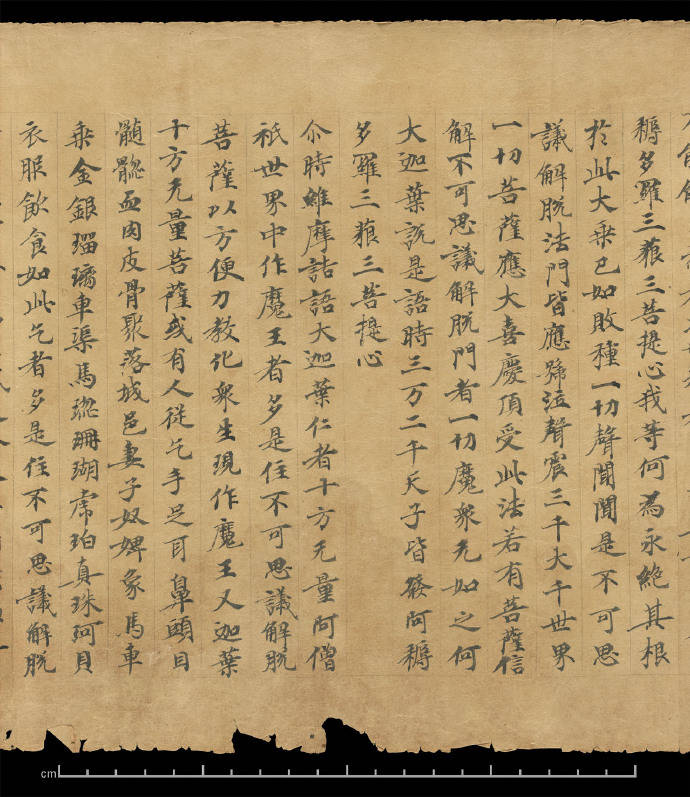 耨多羅三藐三菩提心我等何為永絕其根
於此大乘已如敗種一切聲聞聞是不可思
議解脫法門皆應號泣聲震三千大千世界
一切菩薩應大喜慶頂受此法若有菩薩信
解不可思議解脫門者一切魔衆无如之何
大迦葉說是語時三万二千天子皆發阿耨
多羅三藐三菩提心
尒時維摩詰語大迦葉仁者十方无量阿僧
祇世界中作魔王者多是住不可思議解脫
菩薩以方便力教化衆生現作魔王又迦葉
十方无量菩薩或有人從乞手足耳鼻頭目
髓𦛁血肉皮骨聚落城邑妻子奴婢象馬車
乘金銀瑠璃車渠馬瑙珊瑚虎珀真珠珂貝
衣服飲食如此乞者多是住不可思議解脫
cm